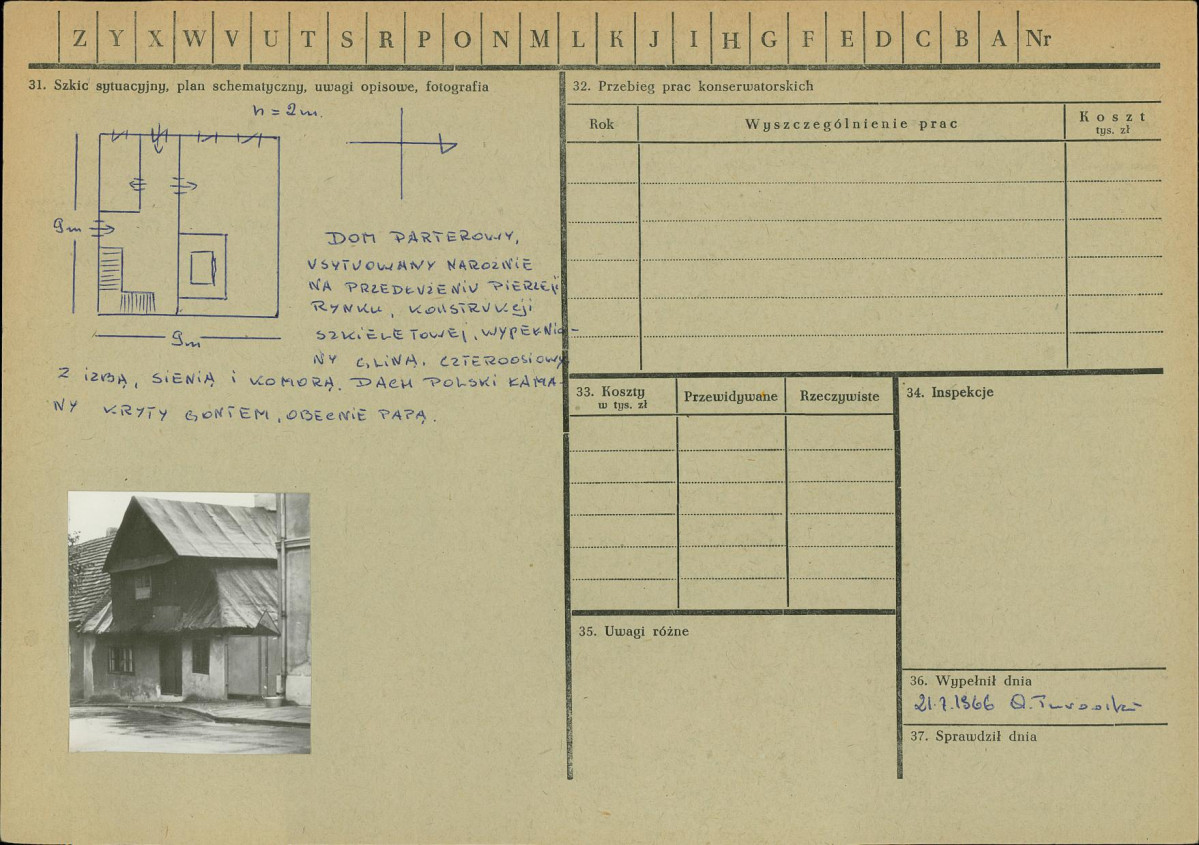 Z Y X W V U T S R P O N M L K J I H G F E D C B A Nr
31. Szkic sytuacyjny, plan schematyczny, uwagi opisowe, fotografia
h = 2m.
9m
9m
DOM PARTEROWY,
USYTUOWANY NAROŻNIE
NA PRZEDŁUŻENIU PIERZEJI
RYNKU, KONSTRUKCJI
SZKIELETOWEJ, WYPEŁNIO-
NY GLINĄ. CZTEROOSIOWY
Z IZBĄ, SIENIĄ I KOMORĄ. DACH POLSKI ŁAMA-
NY KRYTY GONTEM, OBECNIE PAPĄ.
32. Przebieg prac konserwatorskich
Rok Wyszczególnienie prac Koszt
tys. zł
33. Koszty
w tys. zł
Przewidywane Rzeczywiste
34. Inspekcje
35. Uwagi różne
36. Wypełnił dnia
21.7.1966
37. Sprawdził dnia